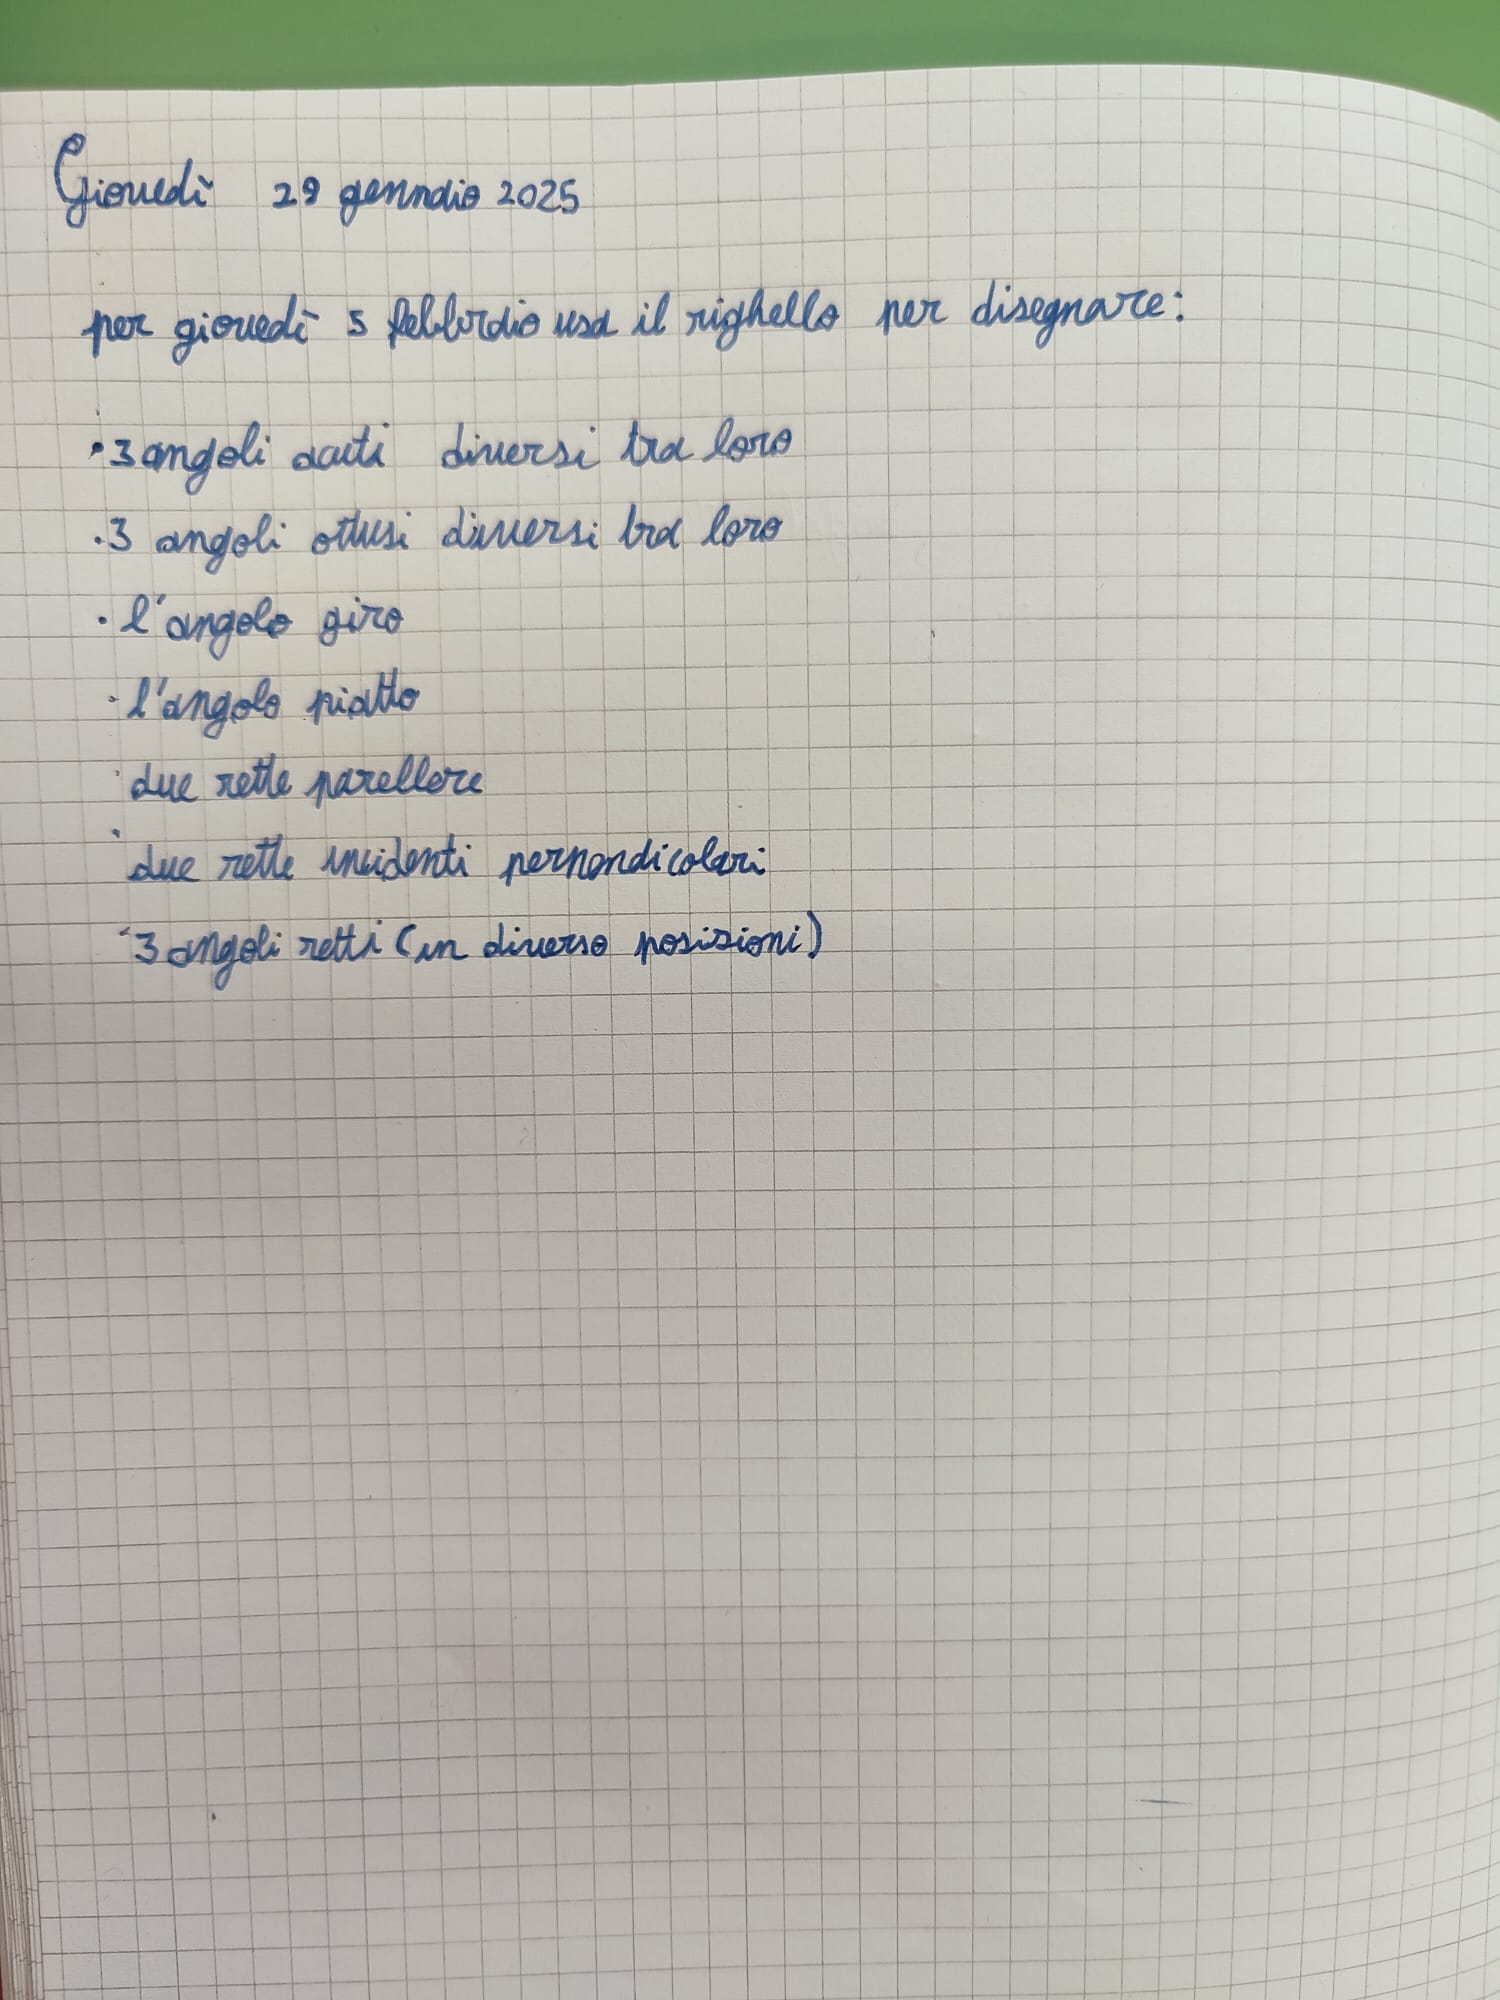 Giovedì 29 gennaio 2025
per giovedì 5 febbraio usa il righello per disegnare:
• 3 angoli acuti diversi tra loro
• 3 angoli ottusi diversi tra loro
• l'angolo giro
• l'angolo piatto
• due rette parellere
• due rette incidenti pernondicolari
• 3 angoli retti (in diverso posizioni)